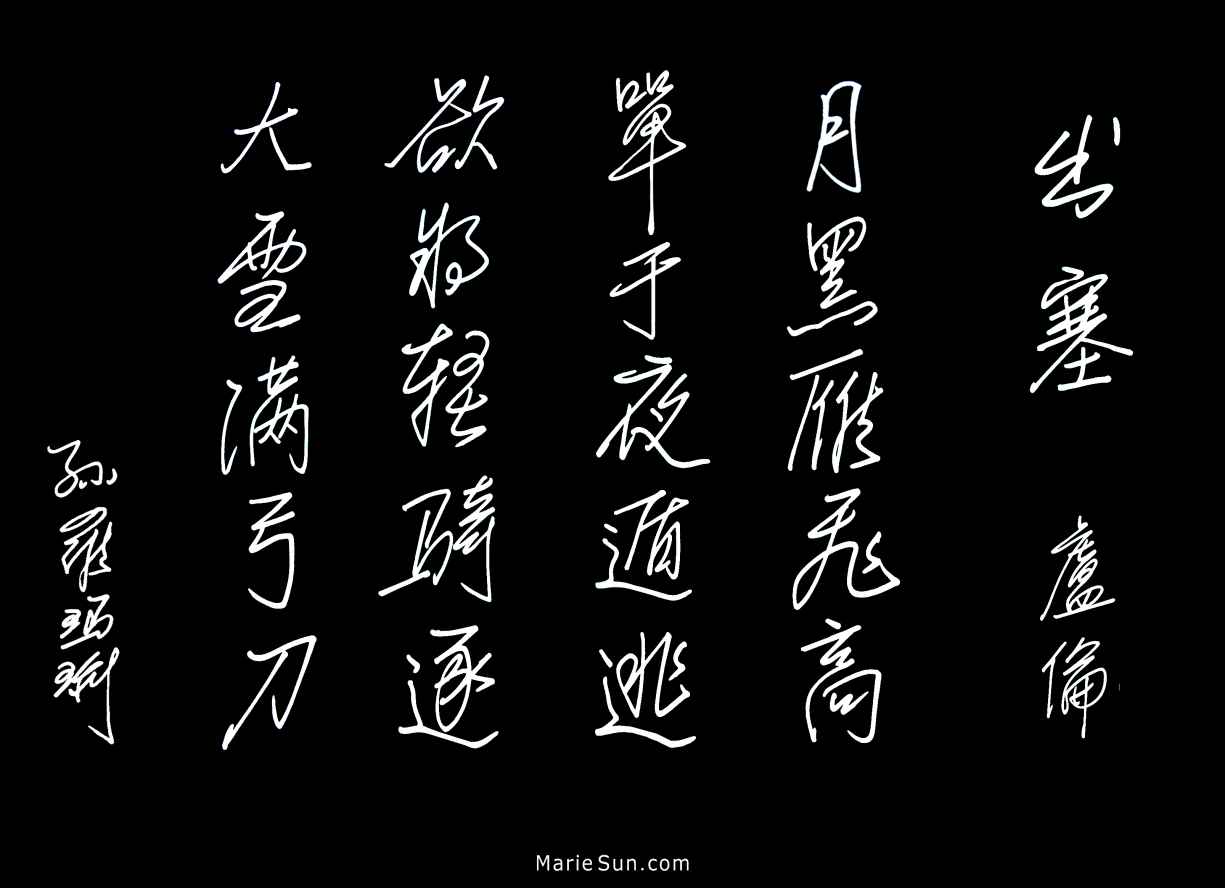 出塞 盧倫
月黑雁飛高
單于夜遁逃
欲將輕騎逐
大雪满弓刀
孫羅瑪琍
MarieSun.com